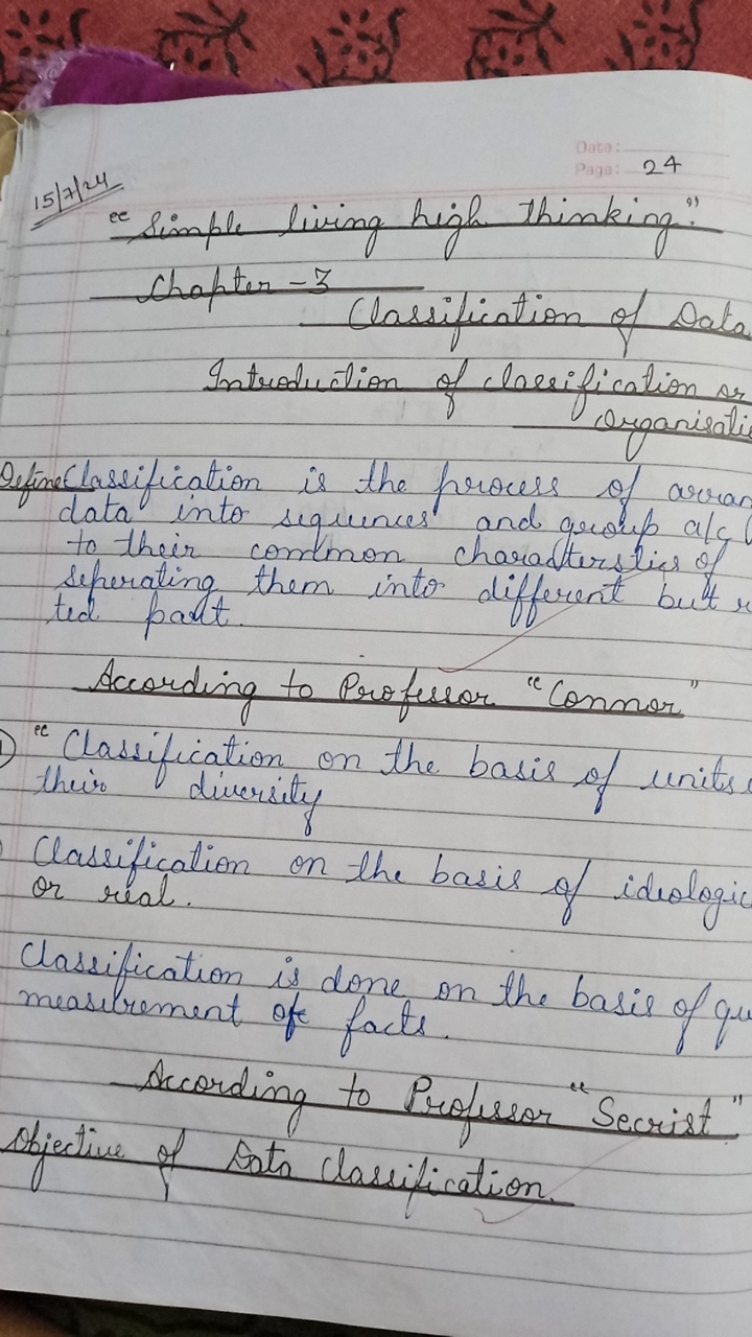 Date:
Page: 24
15/7/24
"Simple living high thinking"
Chapter - 3
Classification of Data
Introduction of classification or
Organisati
Define Classification is the process of arran
data into sequences and group a/c
to their common charachterstics of
seperating them into different but
ted part.
According to Professor "Connor"
" Classification on the basis of units
their diversity
Classification on the basis of ideologic
or real.
Classification is done on the basis of qu
measurement of facts.
According to Professor "Secrist"
Objective of Data classification.